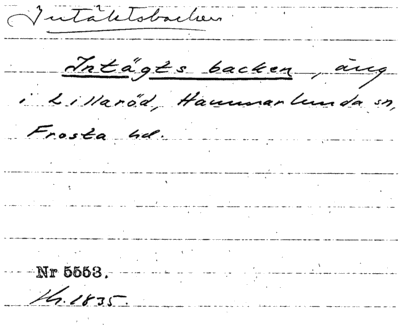 Intäktsbacken
Intägts backen, äng
i Lillaröd, Hammarlunda sn,
Frosta hd.
Nr 5553.
1835.